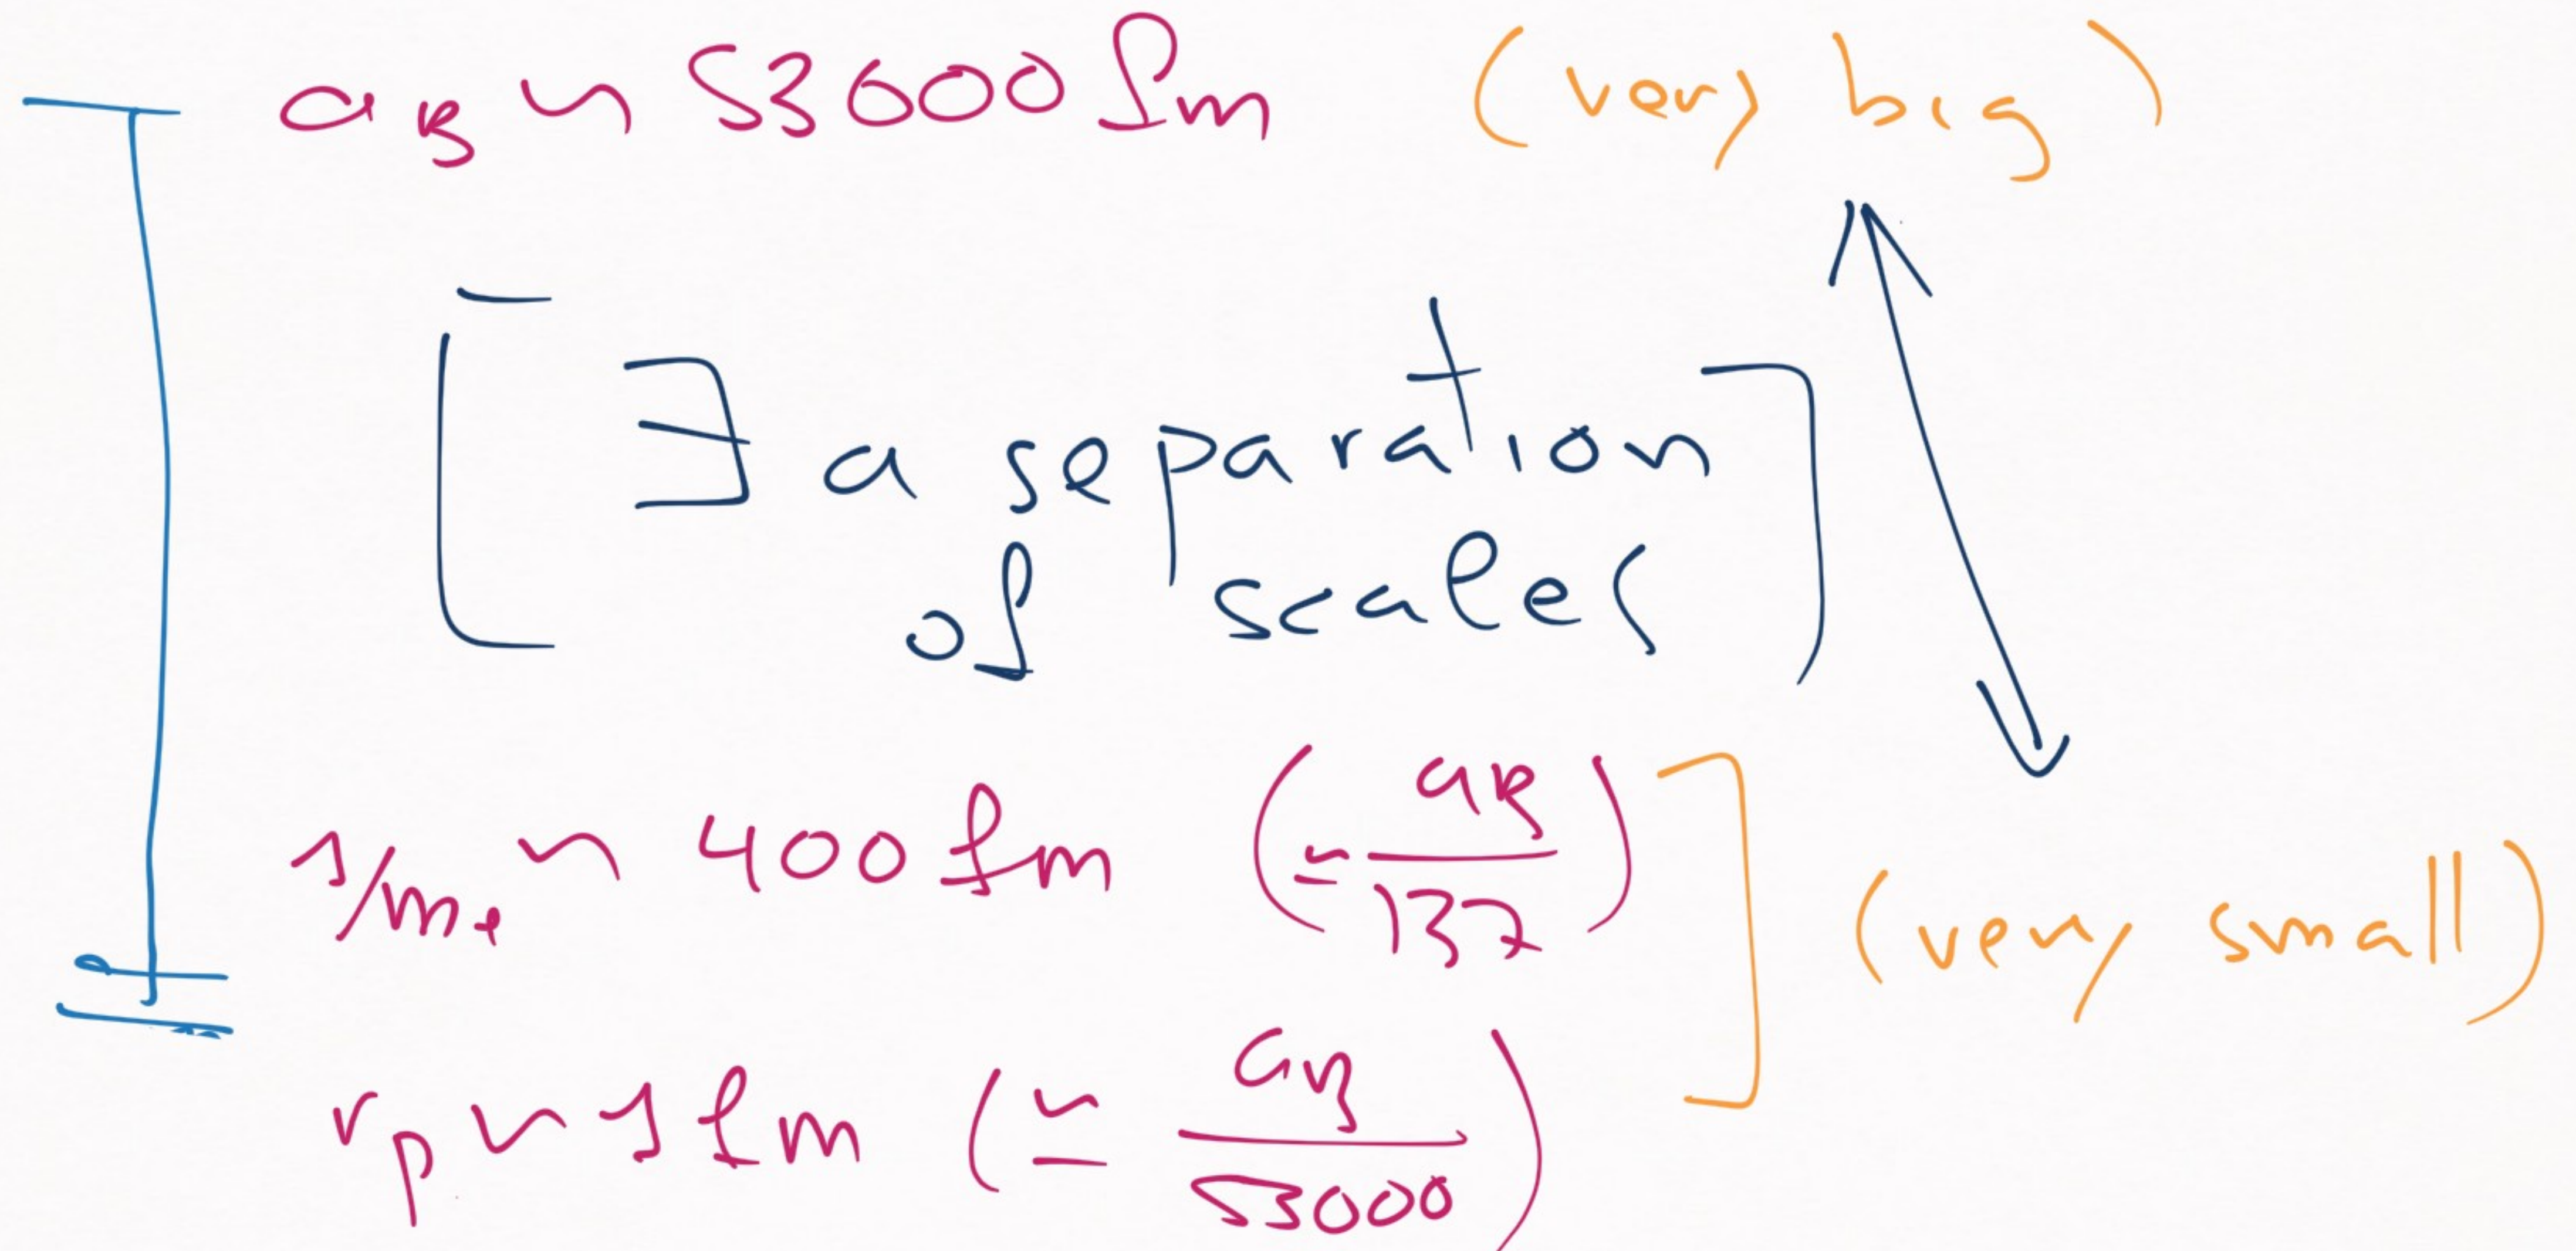 a_B ~ 53000 fm (very big)
[ ∃ a separation
of scales ]
1/m_e ~ 400 fm (≃ a_B/137)
(very small)
r_p ~ 1 fm (≃ a_B/53000)